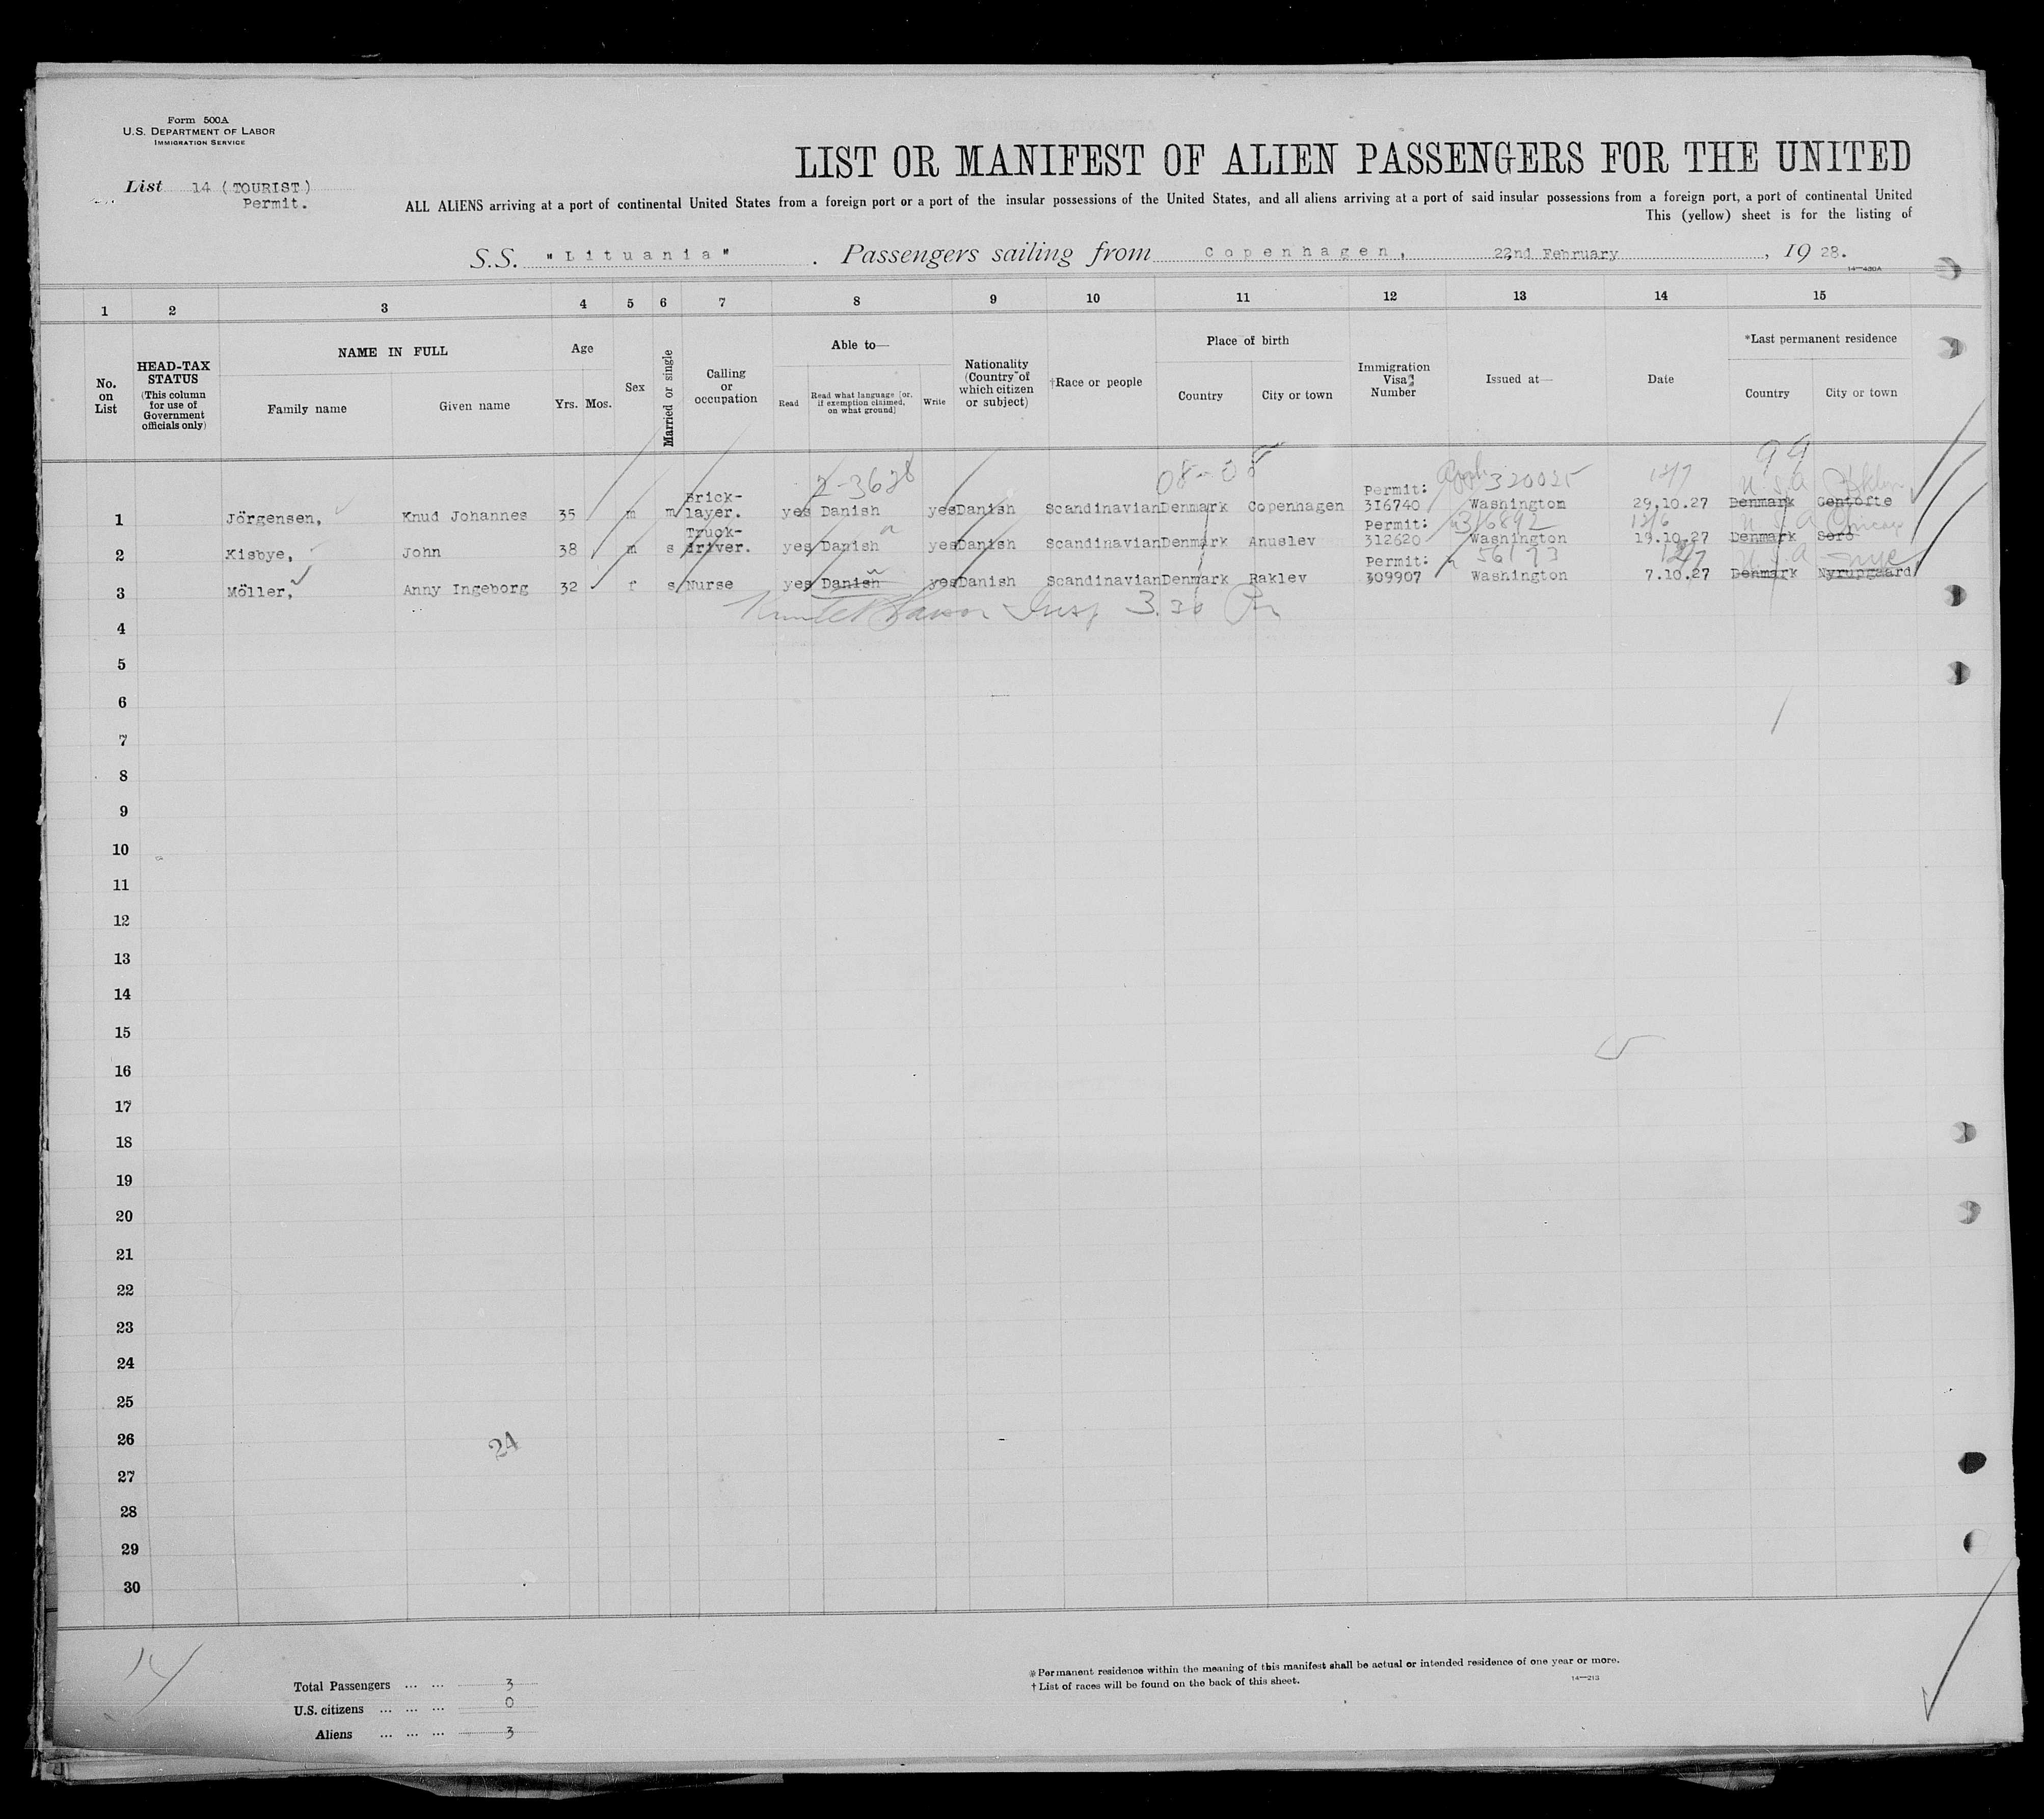 Form 500A
U.S. DEPARTMENT OF LABOR
IMMIGRATION SERVICE
List 14 (TOURIST)
Permit.
LIST OR MANIFEST OF ALIEN PASSENGERS FOR THE UNITED
ALL ALIENS arriving at a port of continental United States from a foreign port or a port of the insular possessions of the United States, and all aliens arriving at a port of said insular possessions from a foreign port, a port of continental United
This (yellow) sheet is for the listing of
S.S. "Lituania". Passengers sailing from Copenhagen, 22nd February, 1928.
14—480A
1 2 3 4 5 6 7 8 9 10 11 12 13 14 15
No. on List
HEAD-TAX STATUS
(This column for use of Government officials only)
NAME IN FULL
Family name Given name
Age
Yrs. Mos.
Sex
Married or single
Calling or occupation
Able to—
Read
Read what language [or, if exemption claimed, on what ground]
Write
Nationality (Country of which citizen or subject)
†Race or people
Place of birth
Country City or town
Immigration Visa Number
Issued at—
Date
*Last permanent residence
Country City or town
99
2-3628 320025 12/7 U.S.A
Brick- Permit:
1 Jörgensen, Knud Johannes 35 m m layer. yes Danish yes Danish Scandinavian Denmark Copenhagen 3I6740 Washington 29.10.27 Denmark Gentofte
316892 12/6 U.S.A Chicago
Truck- Permit:
2 Kisbye, John 38 m s driver. yes Danish yes Danish Scandinavian Denmark Anuslev 312620 Washington 19.10.27 Denmark Sorö
Permit: 56193 12/7 U.S.A NYC
3 Möller, Anny Ingeborg 32 f s Nurse yes Danish yes Danish Scandinavian Denmark Raklev 309907 Washington 7.10.27 Denmark Nyrupgaard
Insp 3.30 Pm
4
5
6
7
8
9
10
11
12
13
14
15
16
17
18
19
20
21
22
23
24
25
26
24
27
28
29
30
14
Total Passengers ... ... 3
U.S. citizens ... ... ... 0
Aliens ... ... ... 3
*Permanent residence within the meaning of this manifest shall be actual or intended residence of one year or more.
†List of races will be found on the back of this sheet.
14—213